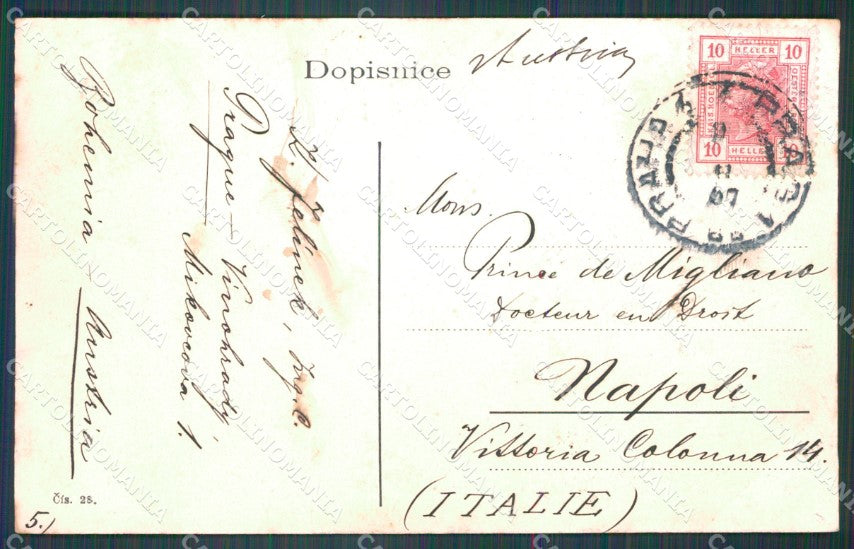 Dopisnice
Austria
10 HELLER 10
10 HELLER 10
PRAHA
Mons.
Prince de Migliano
Docteur en Droit
Napoli
Vittoria Colonna 14.
(ITALIE)
K. Jelínek,
Prague - Vinohrady
Mikovcova 1.
Bohemia Austria
Čís. 28.
5.)
CARTOLINOMANIA